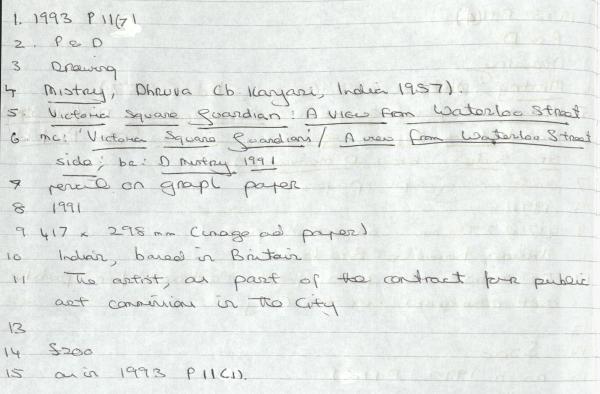 1. 1993 P 11(7)
2. P & D
3 Drawing
4 Mistry, Dhruva (b. Kanjari, India 1957).
5 Victoria Square Guardian: A view from Waterloo Street
6 mc: 'Victoria Square Guardian/ A view from Waterloo Street
side; bc: D Mistry 1991
7 pencil on graph paper
8 1991
9 417 x 298 mm (image and paper)
10 Indian, based in Britain
11 The artist, as part of the contract for public
art commission in the City
13
14 £200
15 as in 1993 P 11(1).